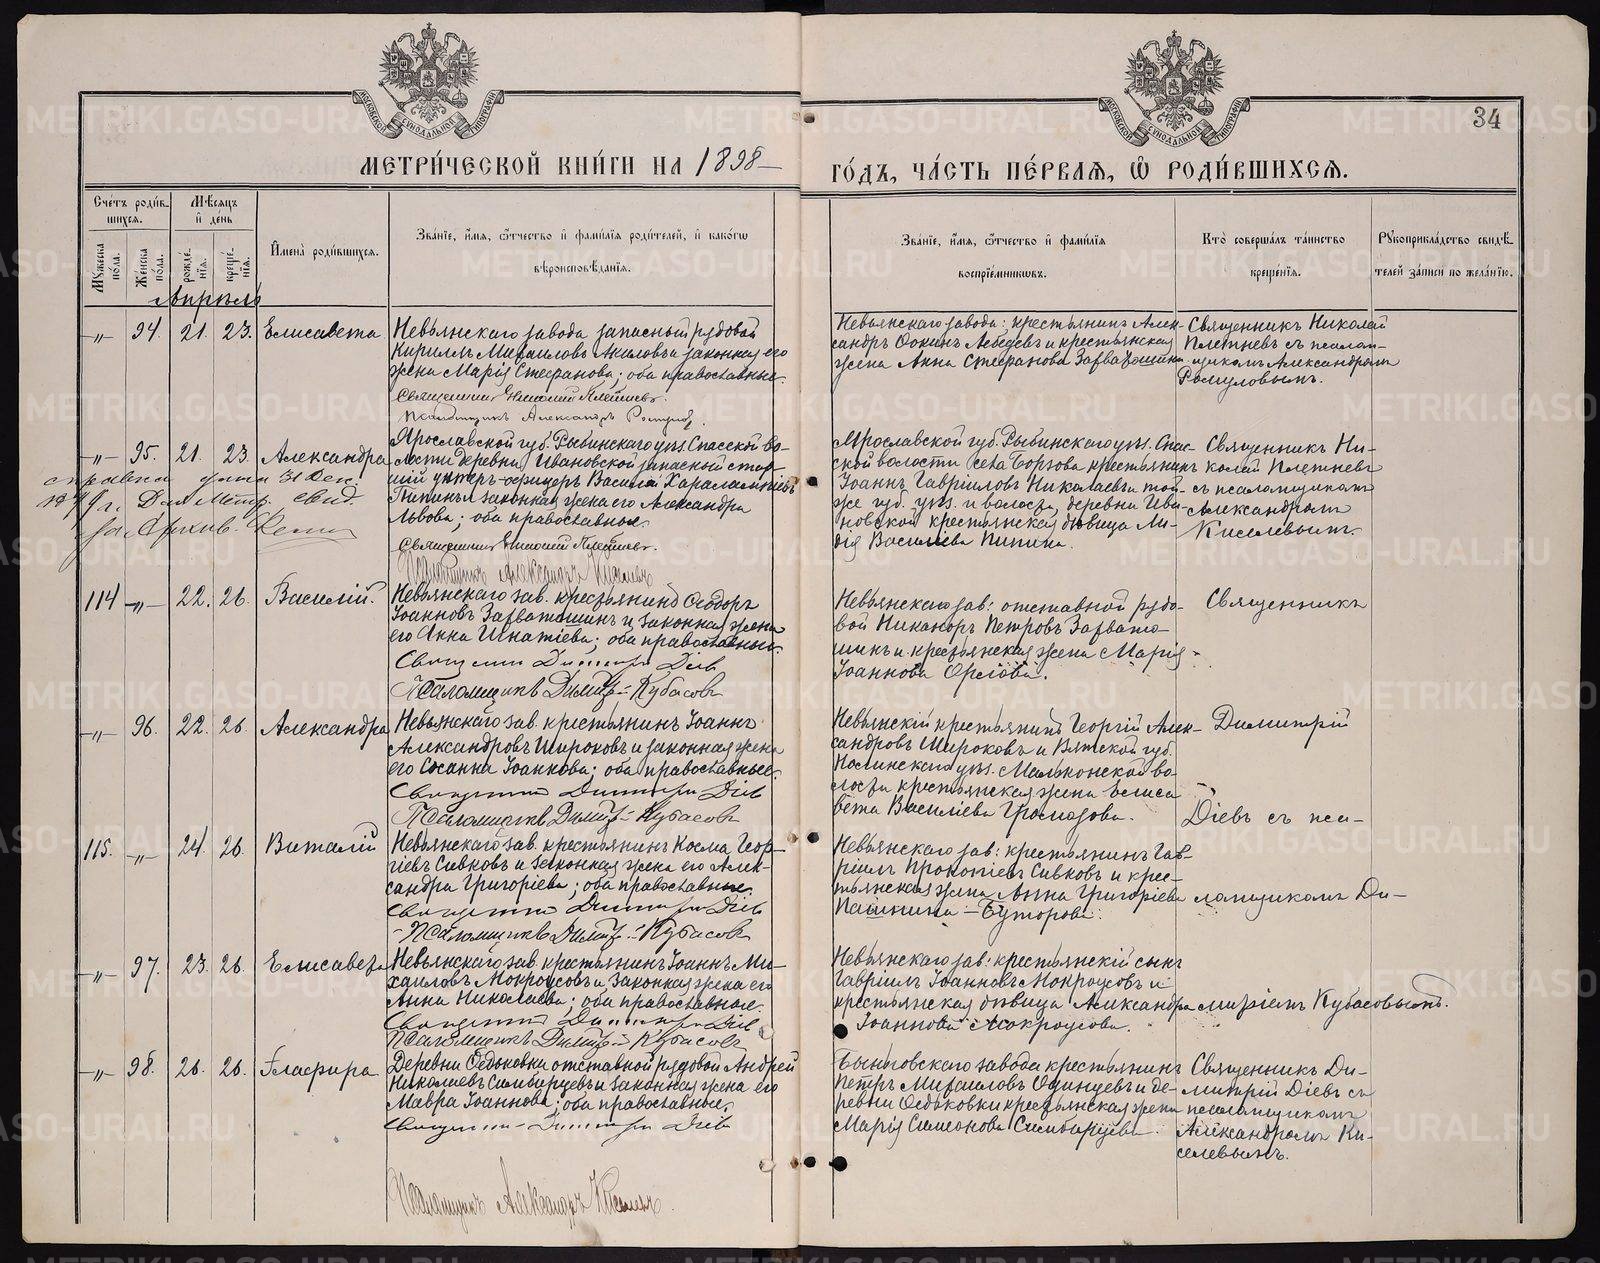 МОСКОВСКОЙ СѴНОДАЛЬНОЙ ТИПОГРАФІИ
МОСКОВСКОЙ СѴНОДАЛЬНОЙ ТИПОГРАФІИ
34
МЕТРИ́ЧЕСКОЙ КНИ́ГИ НА 1898
ГО́ДЪ, ЧА́СТЬ ПЕ́РВАѦ, Ѽ РОДИ́ВШИХСѦ.
Сче́тъ роди́в-
шихсѧ.
Мѣ́сѧцъ
и҆ де́нь
Мꙋ́жеска по́ла.
Же́нска по́ла.
рожде́-
нїѧ.
креще́-
нїѧ.
И҆мена̀ роди́вшихсѧ.
Зва́нїе, и҆́мѧ, ѻ҆́тчество и҆ фами́лїѧ роди́телей, и҆ како́гѡ
вѣроисповѣ́данїѧ.
Зва́нїе, и҆́мѧ, ѻ҆́тчество и҆ фами́лїѧ
воспрїе́мникѡвъ.
Кто̀ соверша́лъ та́инство
креще́нїѧ.
Рꙋкоприкла́дство свидѣ́-
телей за́писи по жела́нїю.
Апрѣль
-„- 94. 21. 23. Елисавета
Невьянскаго завода запасный рядовой
Кириллъ Михаиловъ и законная его
жена Марія Стефанова; оба православные.
Священникъ Николай Плетневъ.
Псаломщикъ Александръ
Невьянскаго завода: крестьянинъ Алек-
сандръ Фокинъ Лебедевъ и крестьянская
жена Анна Стефанова
Священникъ Николай
Плетневъ съ псалом-
щикомъ Александромъ
Ромуловымъ.
-„- 95. 21. 23. Александра
Ярославской губ. Рыбинскаго уѣз. Спасской во-
лости деревни Ивановской запасный стар-
шій унтеръ-офицеръ Василій Харалампіевъ
Пипинъ и законная жена его Александра
Львова; оба православные.
Священникъ Николай Плетневъ.
Псаломщикъ Александръ Киселевъ
Ярославской губ. Рыбинскаго уѣз. Спас-
ской волости села Борзова крестьянинъ
Іоаннъ Гавриловъ Николаевъ и той-
же губ. уѣз. и волости, деревни Ива-
новской крестьянская дѣвица Ли-
дія Васильева Пипина.
Священникъ Ни-
колай Плетневъ
съ псаломщикомъ
Александромъ
Киселевымъ.
справка 31 Дек.
Для Метр. свид.
Архив.
114 -„- 22. 26. Василій.
Невьянскаго зав. крестьянинъ Ѳеодоръ
Іоанновъ и законная жена
его Анна Игнатіева; оба православные.
Священникъ Димитрій Діевъ
Псаломщикъ Димитрій Кубасовъ
Невьянскаго зав: отставной рядо-
вой Никаноръ Петровъ
и крестьянская жена Марія
Іоаннова
Священникъ
-„- 96. 22. 26. Александра
Невьянскаго зав. крестьянинъ Іоаннъ
Александровъ Широковъ и законная жена
его Сосанна Іоаннова; оба православные.
Священникъ Димитрій Діевъ
Псаломщикъ Димитрій Кубасовъ
Невьянскій крестьянинъ Георгій Алек-
сандровъ Широковъ и Вятской губ.
уѣз. во-
лости крестьянская жена Елиса
вета Васильева Громозова.
Димитрій
Діевъ съ пса-
115. -„- 24. 26. Виталій
Невьянскаго зав. крестьянинъ Косма Геор-
гіевъ Сивковъ и законная жена его Алек-
сандра Григоріева; оба православные.
Священникъ Димитрій Діевъ
Псаломщикъ Димитрій Кубасовъ
Невьянскаго зав: крестьянинъ Гав-
ріилъ Прокопіевъ Сивковъ и крес-
тьянская жена Анна Григоріева
ломщикомъ Ди-
-„- 97. 23. 26. Елисавета
Невьянскаго зав. крестьянинъ Іоаннъ Ми-
хаиловъ Мокроусовъ и законная жена его
Анна Николаева; оба православные.
Священникъ Димитрій Діевъ
Псаломщикъ Димитрій Кубасовъ
Невьянскаго зав: крестьянскій сынъ
Гавріилъ Іоанновъ Мокроусовъ и
крестьянская дѣвица Александра
Іоаннова Мокроусова.
митріемъ Кубасовымъ.
-„- 98. 26. 26. Глафира
Деревни Ѳедьковки отставной рядовой Андрей
Николаевъ Симбирцевъ и законная жена его
Мавра Іоаннова; оба православные.
Священникъ Димитрій Діевъ
Псаломщикъ Александръ Киселевъ.
Быньговскаго завода крестьянинъ
Петръ Михаиловъ Одинцевъ и де-
ревни Ѳедьковки крестьянская жена
Марія Симеонова Симбирцева.
Священникъ Ди-
митрій Діевъ съ
псаломщикомъ
Александромъ Ки-
селевымъ.
METRIKI.GASO-URAL.RU